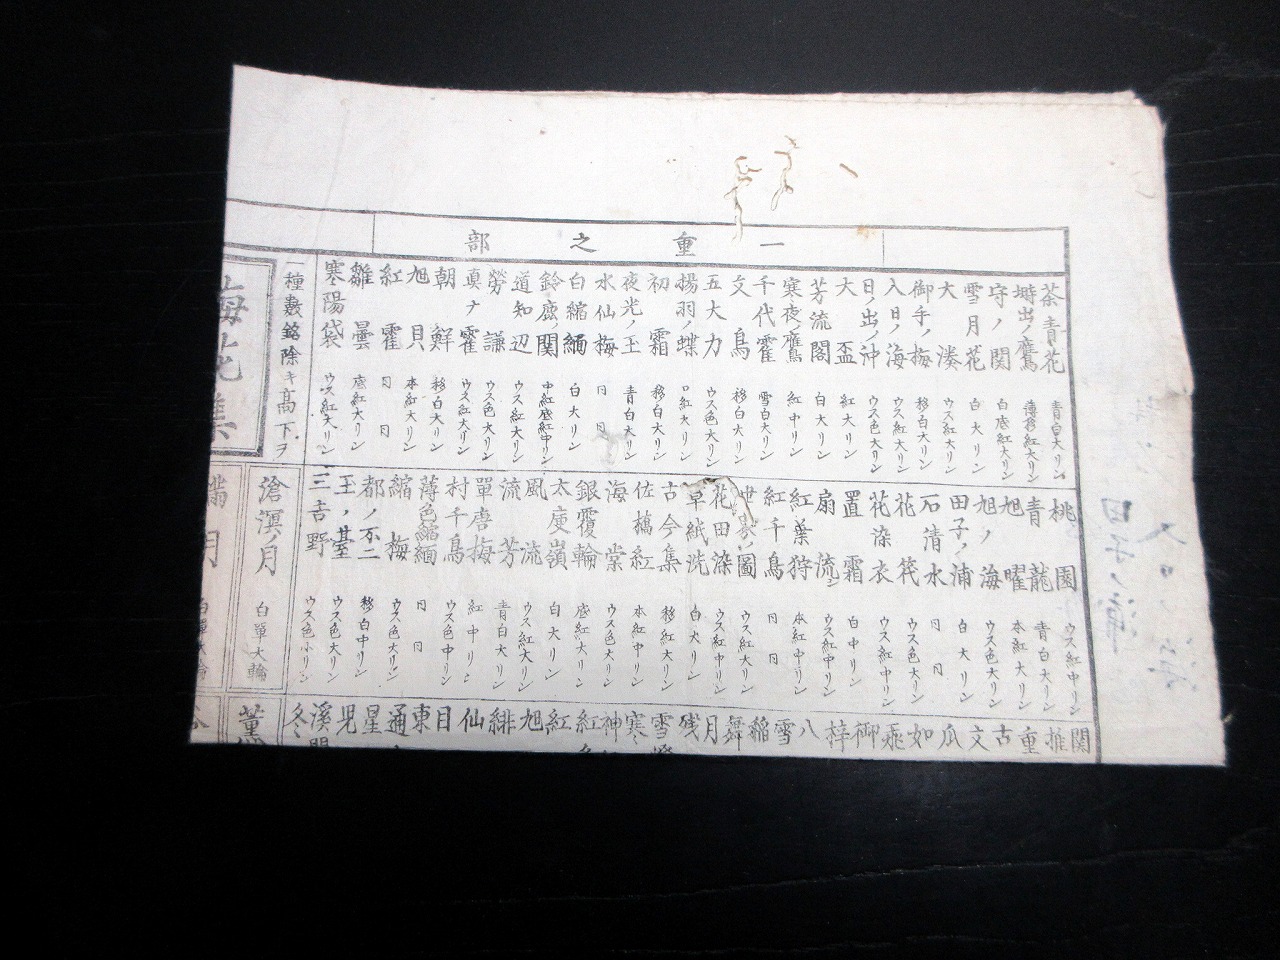 一重之部
茶青花 青白大リン
塒出ノ鷹 薄移紅大リン
守ノ関 白底紅大リン
雪月花 白大リン
大湊 ウス紅大リン
御手ノ梅 移白大リン
入日ノ海 ウス紅大リン
日ノ出ノ沖 ウス色大リン
大盃 紅大リン
芳流閣 白大リン
寒夜ノ鷹 紅中リン
千代霍 雪白大リン
文鳥 移白大リン
五大力 ウス色大リン
揚羽ノ蝶 口紅大リン
初霜 移白大リン
夜光ノ玉 青白大リン
水仙梅 日日
白縮緬 白大リン
鈴鹿ノ関 中紅底紅中リン
道知辺 ウス紅大リン
勞謙 ウス色大リン
真ナ霍 ウス紅大リン
朝鮮 移白大リン
旭貝 本紅大リン
紅霍 日日
雛曇 底紅大リン
寒陽袋 ウス紅大リン
桃園 ウス紅中リン
青龍 青白大リン
旭曜 本紅大リン
旭ノ海 ウス色大リン
田子ノ浦 白大リン
石清水 日日
花筏 ウス色大リン
花染衣 ウス紅中リン
置霜 白中リン
扇流シ ウス紅中リン
紅葉狩 本紅中リン
紅千鳥 日日
圖 ウス紅大リン
花田染 ウス紅大リン
草紙洗 白大リン
古今集 移紅大リン
佐橘紅 本紅中リン
海棠 ウス紅大リン
銀覆輪 底紅大リン
太庾嶺 白大リン
風流 ウス紅大リン
流芳 青白大リン
單唐梅 紅中リン
村千鳥 ウス色中リン
薄色縮緬 日日
縮梅 ウス色大リン
都ノ不二 移白中リン
玉ノ臺 ウス色大リン
三吉野 ウス色小リン
関
推
重
古
文
瓜
如
乘
御
梓
八
雪
稲
舞
月
残
雪
寒
神
紅
紅
旭
緋
仙
目
東
通
星
児
溪
冬
一種數銘除キ高下ヲ
滄溟ノ月 白單大輪
月
田子ノ浦